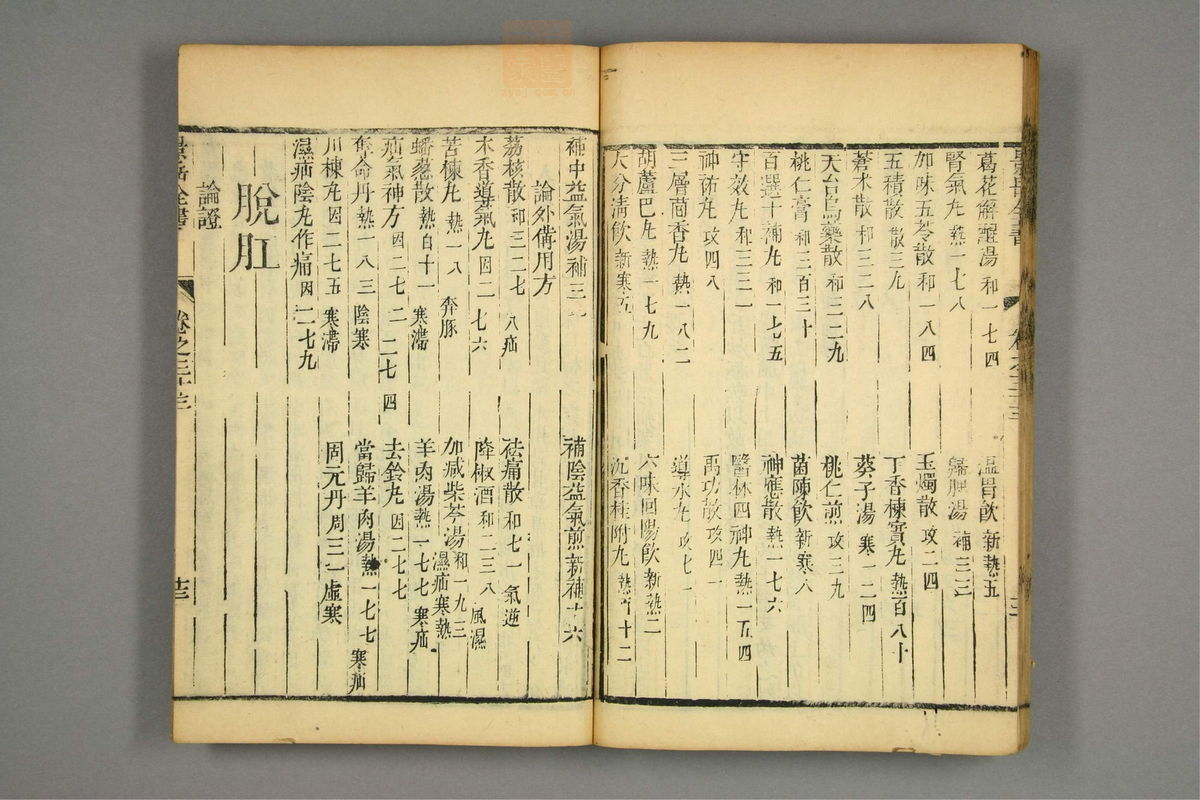 葛花解醒湯 和一七四 溫胃飲 新熱五
腎氣丸 熱一七八 歸脾湯 補三二
加味五苓散 和一八四 玉燭散 攻二四
五積散 散三九 丁香楝實丸 熱百八十
蒼朮散 和三二八 葵子湯 寒一二四
天台烏藥散 和三二九 桃仁煎 攻三九
桃仁膏 和三百三十 茵陳飲 新寒八
百選十補丸 和一七五 神應散 熱一七六
守效丸 和三三一 醫林四神丸 熱一五四
神祐丸 攻四八 禹功散 攻四一
三層茴香丸 熱一八二 導水丸 攻七一
胡蘆巴丸 熱一七九 六味回陽飲 新熱二
大分清飲 新寒五 沉香桂附丸 熱百十二
補中益氣湯 補三一 補陰益氣煎 新補十六
論外備用方
荔核散 和三二七 八疝 祛痛散 和七一 氣逆
木香導氣丸 因二七六 降椒酒 和二三八 風濕
苦楝丸 熱一八 奔豚 加減柴苓湯 和一九三 濕疝寒熱
蟠蔥散 熱百十一 寒滯 羊肉湯 熱一七七 寒疝
疝氣神方 因二七二 二七四 去鈴丸 因二七七
奪命丹 熱一八三 陰寒 當歸羊肉湯 熱一七七 寒疝
川楝丸 因二七五 寒滯 固元丹 周三一 虛寒
濕疝陰丸作痛 因二七九
脫肛
論證
景岳全書 卷之三十三